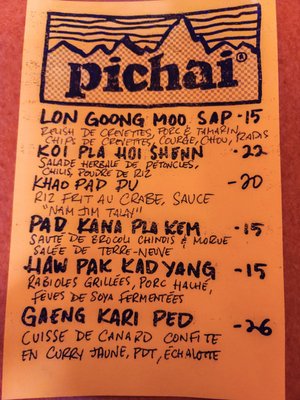 pichai®
LON GOONG MOO SAP -15
RELISH DE CREVETTES, PORC & TAMARIN,
CHIPS DE CREVETTES, COURGE, CHOU, RADIS
KOI PLA HOI SHENN -22
SALADE HERBALE DE PÉTONCLES,
CHILIS, POUDRE DE RIZ
KHAO PAD PU -20
RIZ FRIT AU CRABE, SAUCE
"NAM JIM TALAY"
PAD KANA PLA KEM -15
SAUTÉ DE BROCOLI CHINOIS & MORUE
SALÉE DE TERRE-NEUVE
LIAW PAK KAD YANG -15
RABIOLES GRILLÉES, PORC HACHÉ,
FÈVES DE SOYA FERMENTÉES
GAENG KARI PED -26
CUISSE DE CANARD CONFITE
EN CURRY JAUNE, PDT, ÉCHALOTTE